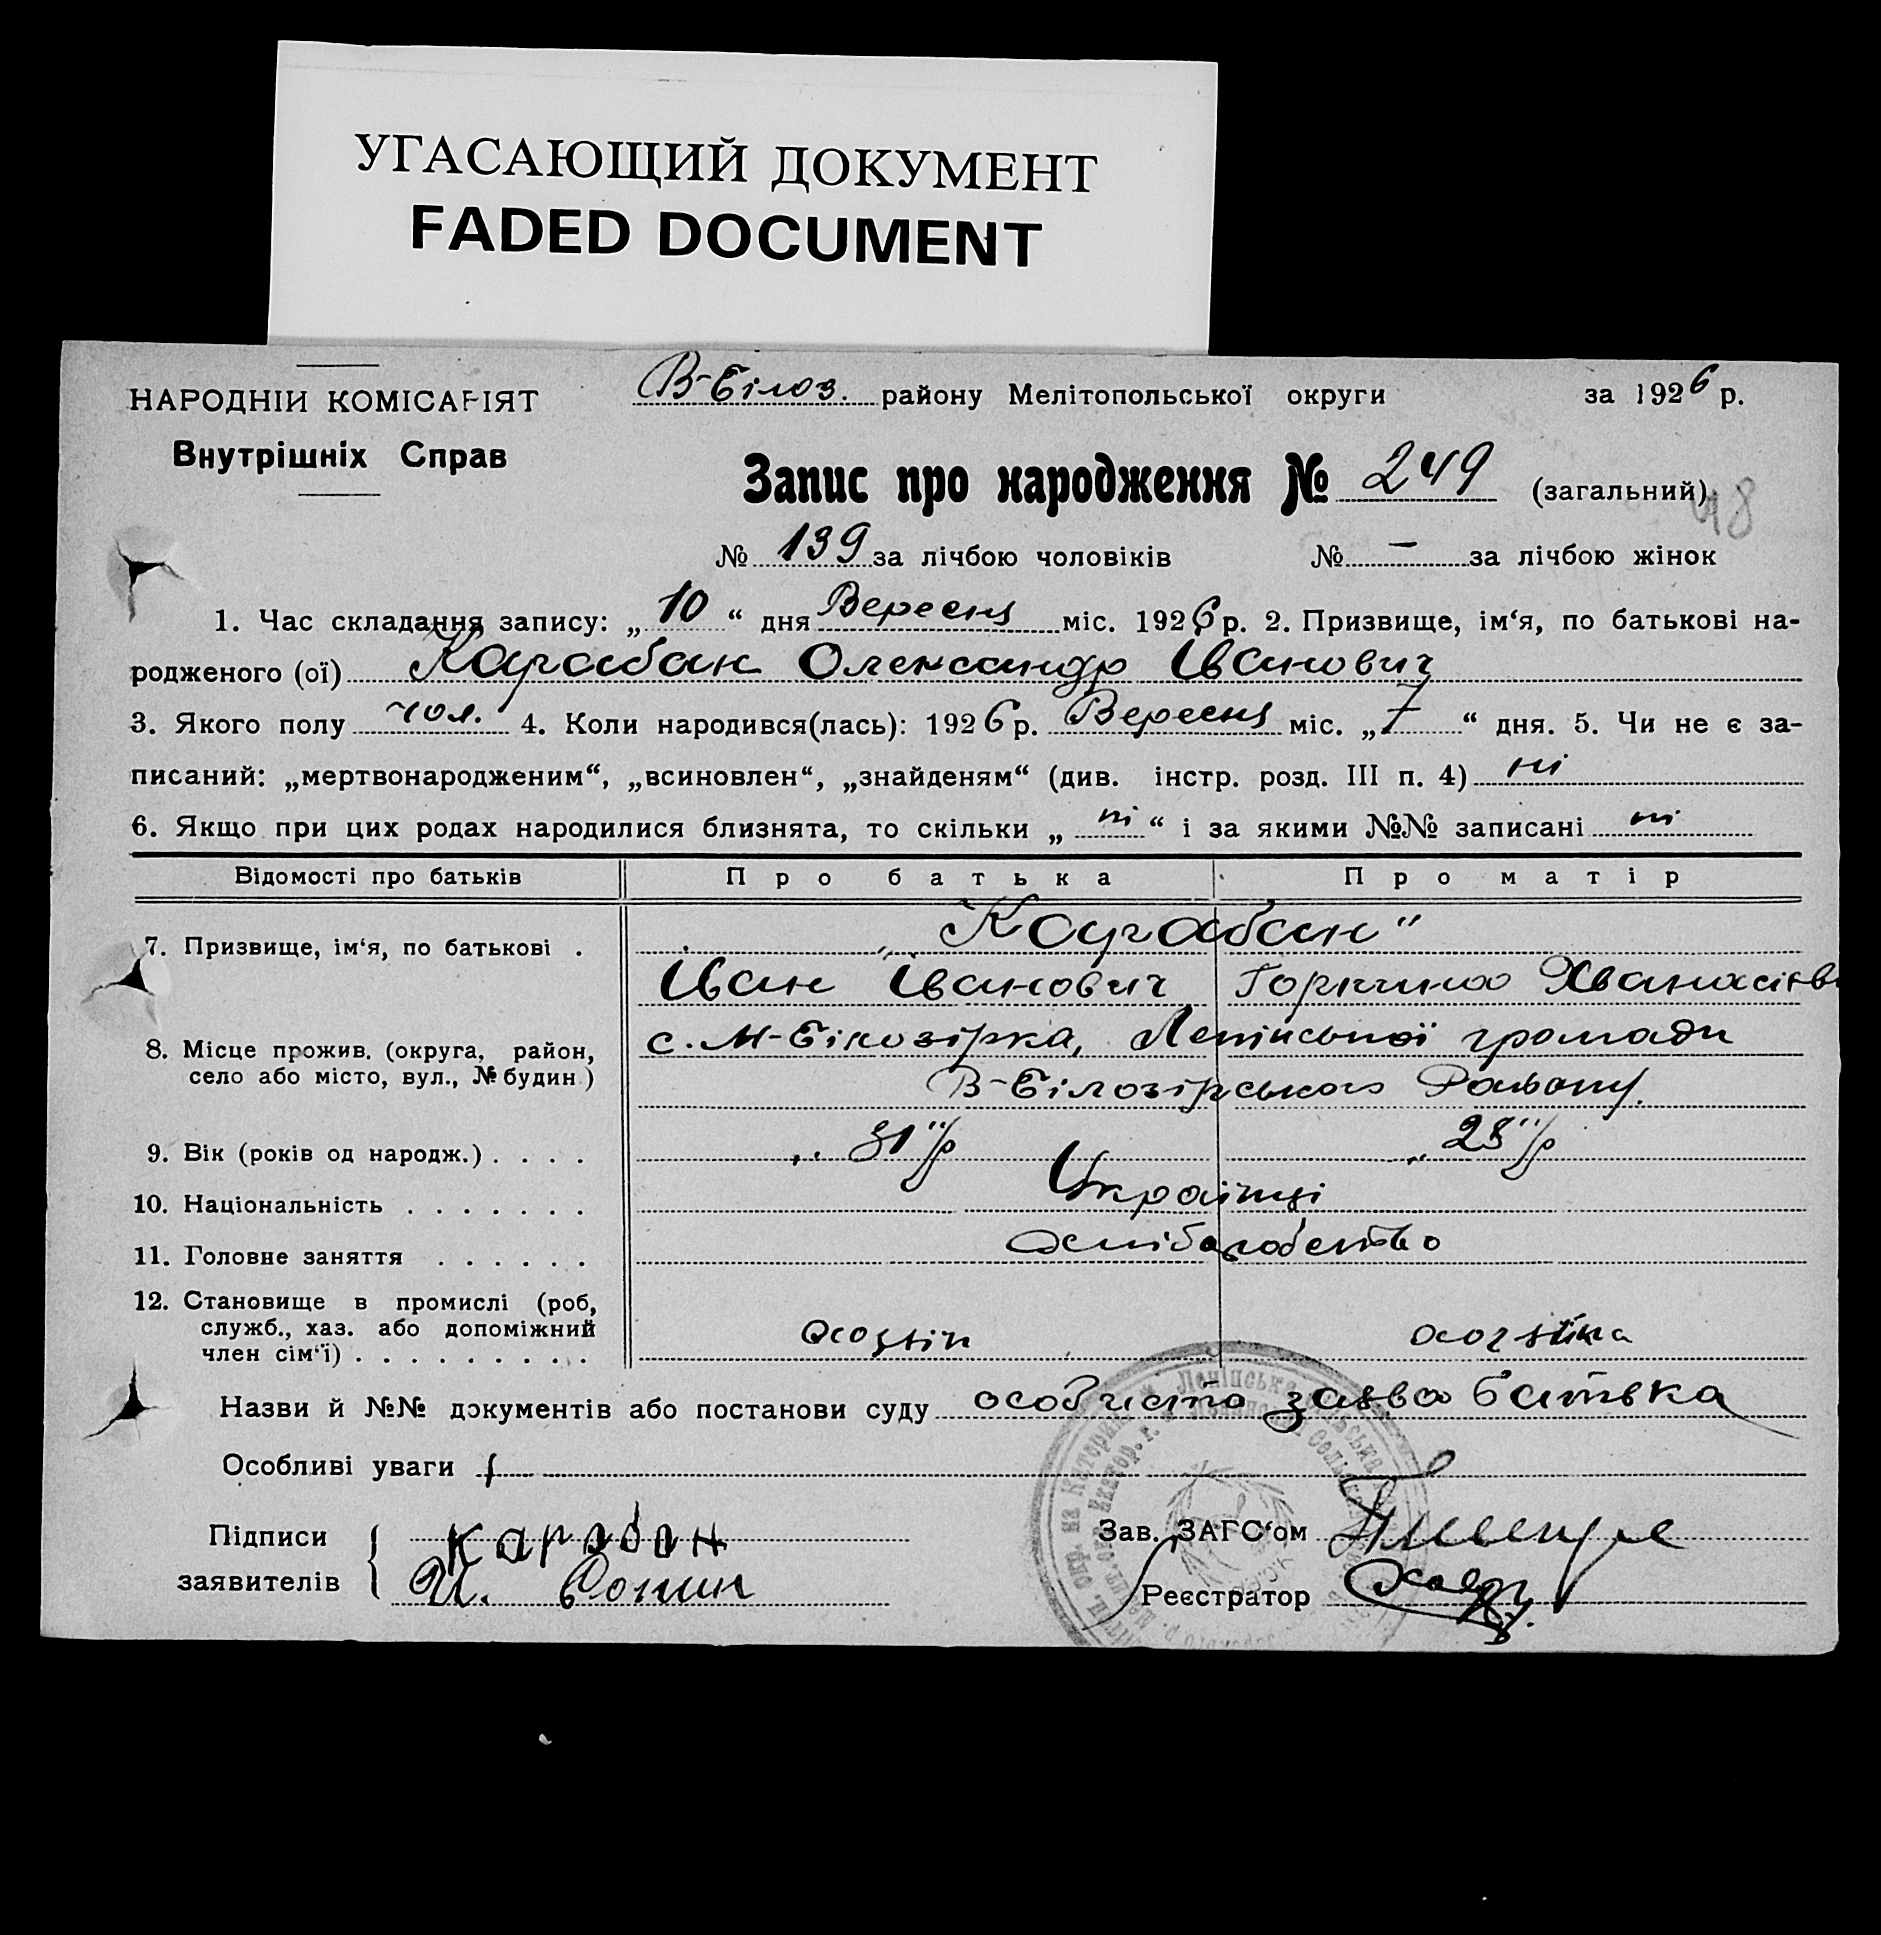 УГАСАЮЩИЙ ДОКУМЕНТ
FADED DOCUMENT
НАРОДНІЙ КОМІСАРІЯТ
Внутрішніх Справ
В-Білоз. району Мелітопольської округи за 1926 р.
Запис про народження № 249 (загальний)
48
№ 139 за лічбою чоловіків № — за лічбою жінок
1. Час складання запису: „10“ дня Вересня міс. 1926 р. 2. Призвище, ім‘я, по батькові на-
родженого (ої) Карабан Олександр Іванович
3. Якого полу чол. 4. Коли народився(лась): 1926 р. Вересня міс. „7“ дня. 5. Чи не є за-
писаний: „мертвонародженим“, „всиновлен“, „знайденям“ (див. інстр. розд. III п. 4) ні
6. Якщо при цих родах народилися близнята, то скільки „ні“ і за якими №№ записані ні
Відомості про батьків Про батька Про матір
7. Призвище, ім‘я, по батькові . „Карабан“
Іван Іванович Горпина
8. Місце прожив. (округа, район, село або місто, вул., № будин.) с. М-Білозірка, Ленінської громади
В-Білозірського Району.
9. Вік (років од народж.) . . . . „31“ р „28“ р
10. Національність . . . . . . . Українці
11. Головне заняття . . . . . . хліборобство
12. Становище в промислі (роб, служб., хаз. або допоміжний член сім‘ї) . . . . . . . . . хозяїн хозяйка
Назви й №№ документів або постанови суду особиста заява батька
Особливі уваги
Підписи заявителів { Карабан
Зав. ЗАГС‘ом
Реєстратор